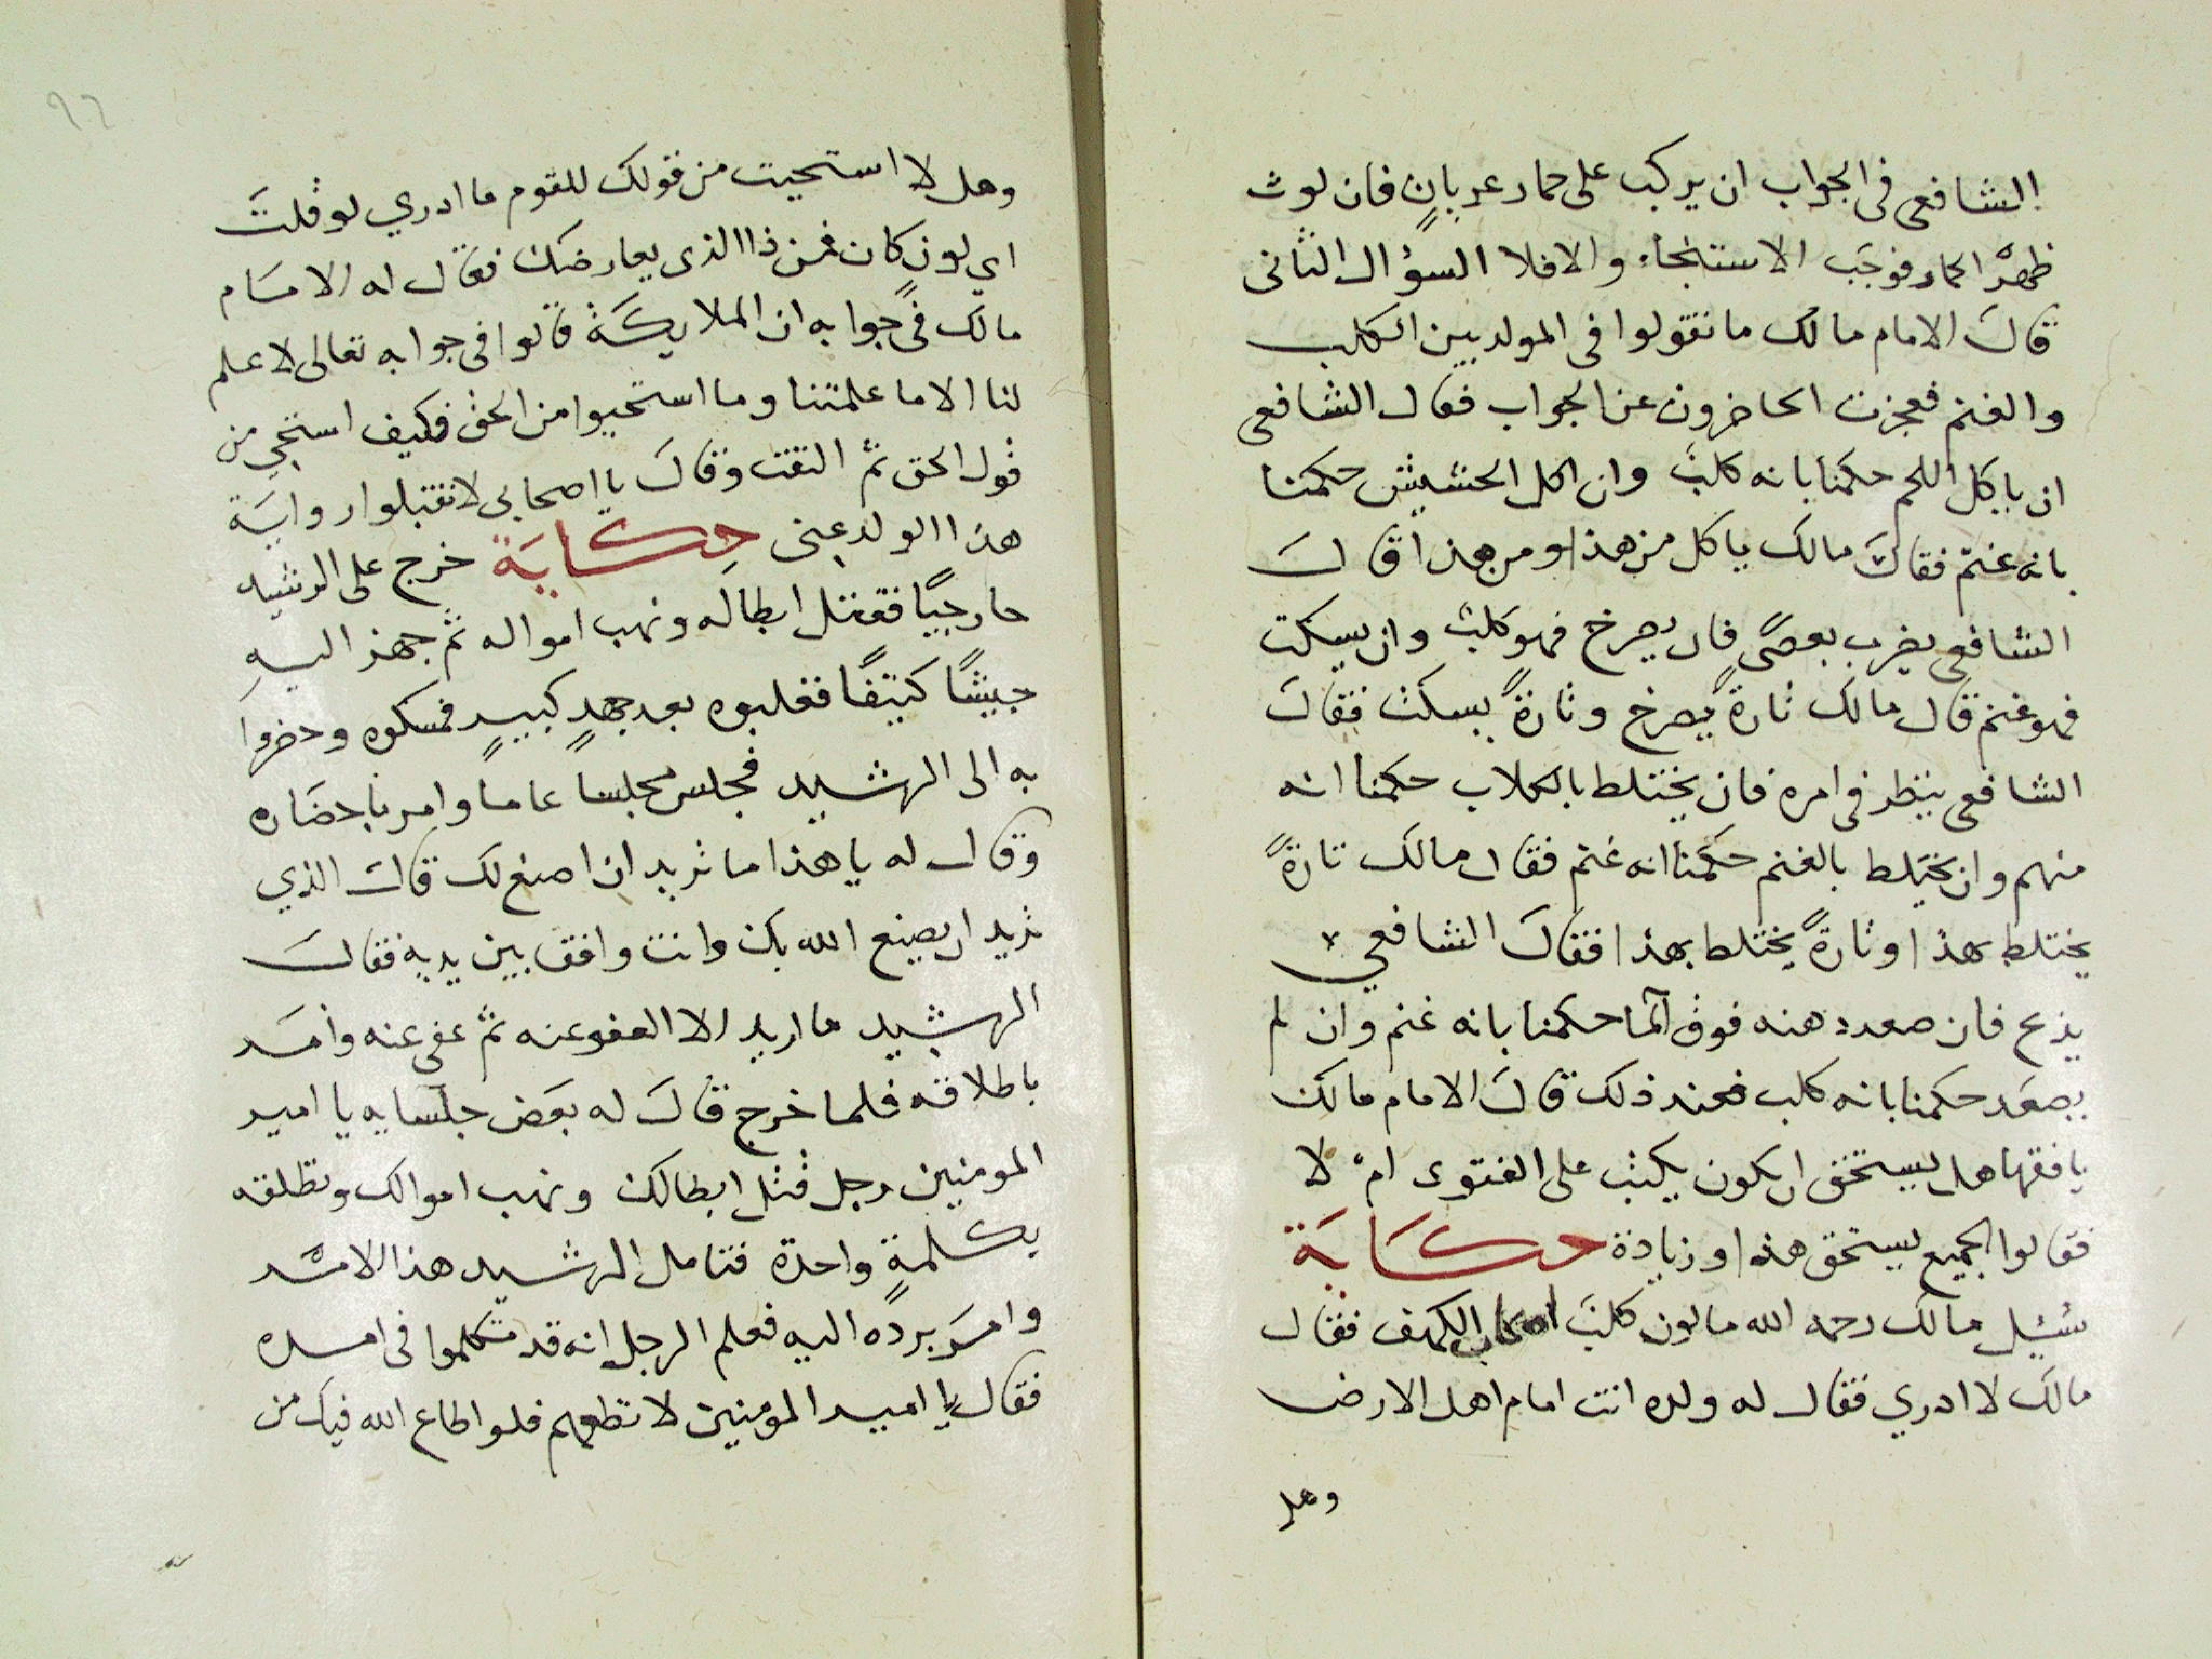 الشافعى فى الجواب ان يركب على حمار عريانٍ فان لوث
ظهر الحمار فوجَب الاستنجاء والا فلا السؤال الثانى
قالَ الامام مالك ما تقولوا فى المولد بين الكلب
والغنم فعجزت الحاضرون عن الجواب فقال الشافعى
ان ياكل اللحم حكمنا بانه كلبٌ وان اكل الحشيش حكمنا
بانه غنم فقالَ مالك ياكل من هذا ومن هذا قالَ
الشافعى يضرب بعصًى فان يصرخ فهو كلبٌ وان يسكت
فهو غنم قال مالك تارةً يصرخ وتارةً يسكت فقالَ
الشافعى ينظر فى امره فان يختلط بالكلاب حكمنا انه
منهم وان يختلط بالغنم حكمنا انه غنم فقال مالك تارةً
يختلط بهذا وتارةً يختلط بهذا فقالَ الشافعي
يذبح فان صعد دهنه فوق الما حكمنا بانه غنم وان لم
يصعَد حكمنا بانه كلب فعند ذلك قالَ الامام مالك
يا فقها هل يستحق ان يكون يكتب على الفتوى ام لا
فقالوا الجميع يستحق هذا وزيادة حكَايَة
سُئِل مالك رحمه الله ما لون كلبَ اصحاب الكهف فقال
مالك لا ادري فقال له ولده انت امام اهل الارض
وهل
٩٦
وهل لا استحيت من قولك للقوم ما ادري لو قلتَ
اي لون كان فمن ذا الذى يعارضك فقال له الامام
مالك فى جوابه ان الملايكَة قالوا فى جوابه تعالى لا علم
لنا الا ما علمتنا وما استحيوا من الحق فكيف استحي من
قول الحق ثم التفت وقالَ يا اصحابى لا تقتبلوا روايَة
هذا الولد عنى حِكايَة خرج على الرشيد
خارجيًا فقتل ابطاله ونهب امواله ثم جهز اليهِ
جيشًا كثيفًا فغلبوه بعد جهدٍ كبيرٍ فمسكوه وحضروا
به الى الرشيد فجلس مجلسا عاما وامر باحضَاره
وقال له يا هذا ما تريد ان اصنع لك قالَ الذي
تريد ان يصنع الله بك وانت واقف بين يديه فقالَ
الرشيد ما اريد الا العفو عنه ثم عفى عنه وامَر
باطلاقه فلما خرج قالَ له بعَض جلسايه يا امير
المومنين رجل قتل ابطالك ونهب اموالك وتطلقه
بكلمةٍ واحدة فتامل الرشيد هذا الامر
وامرَ بردّه اليه فعلم الرجل انه قد تكلموا فى امره
فقال يا امير المومنين لا تطعهم فلو اطاع الله فيك من